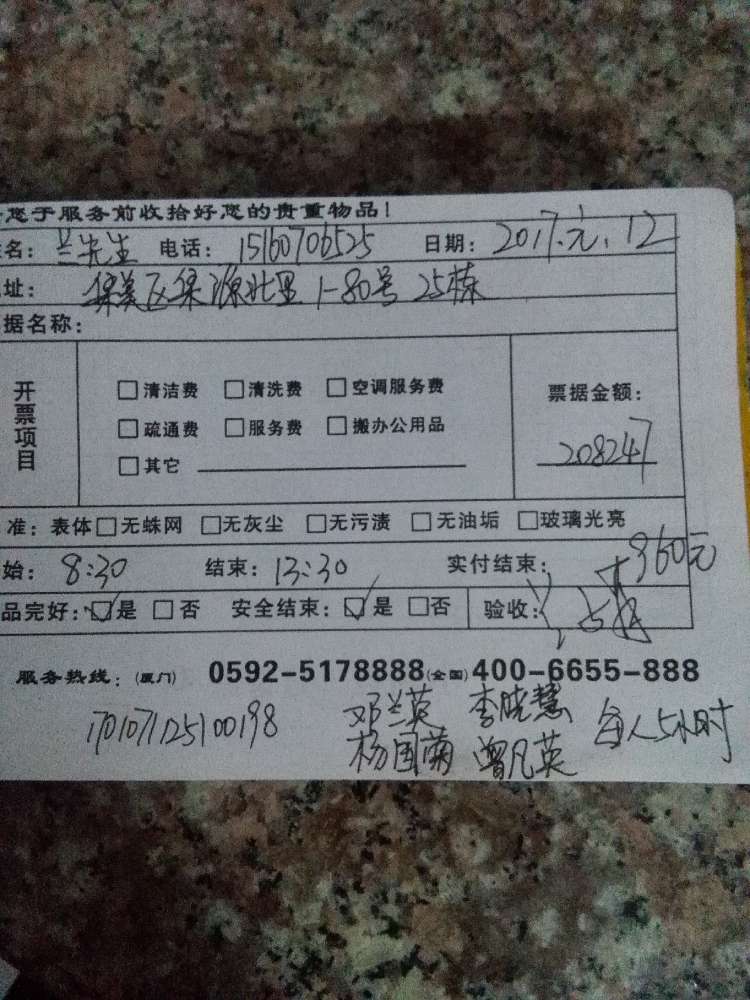 您于服务前收拾好您的贵重物品!
名: 兰先生 电话: 15160706525 日期: 2017.元.12
址: 集美区集源北里1-80号 25栋
据名称:
开票项目
□清洁费 □清洗费 □空调服务费
□疏通费 □服务费 □搬办公用品
□其它
票据金额:
208247
准: 表体□无蛛网 □无灰尘 □无污渍 □无油垢 □玻璃光亮
始: 8:30 结束: 13:30 实付结束: 960元
品完好: ☑是 □否 安全结束: ☑是 □否 验收:
服务热线: (厦门) 0592-5178888 (全国) 400-6655-888
170107125100198 邓兰英 李晓慧 每人5小时
杨国菊 曾凡英